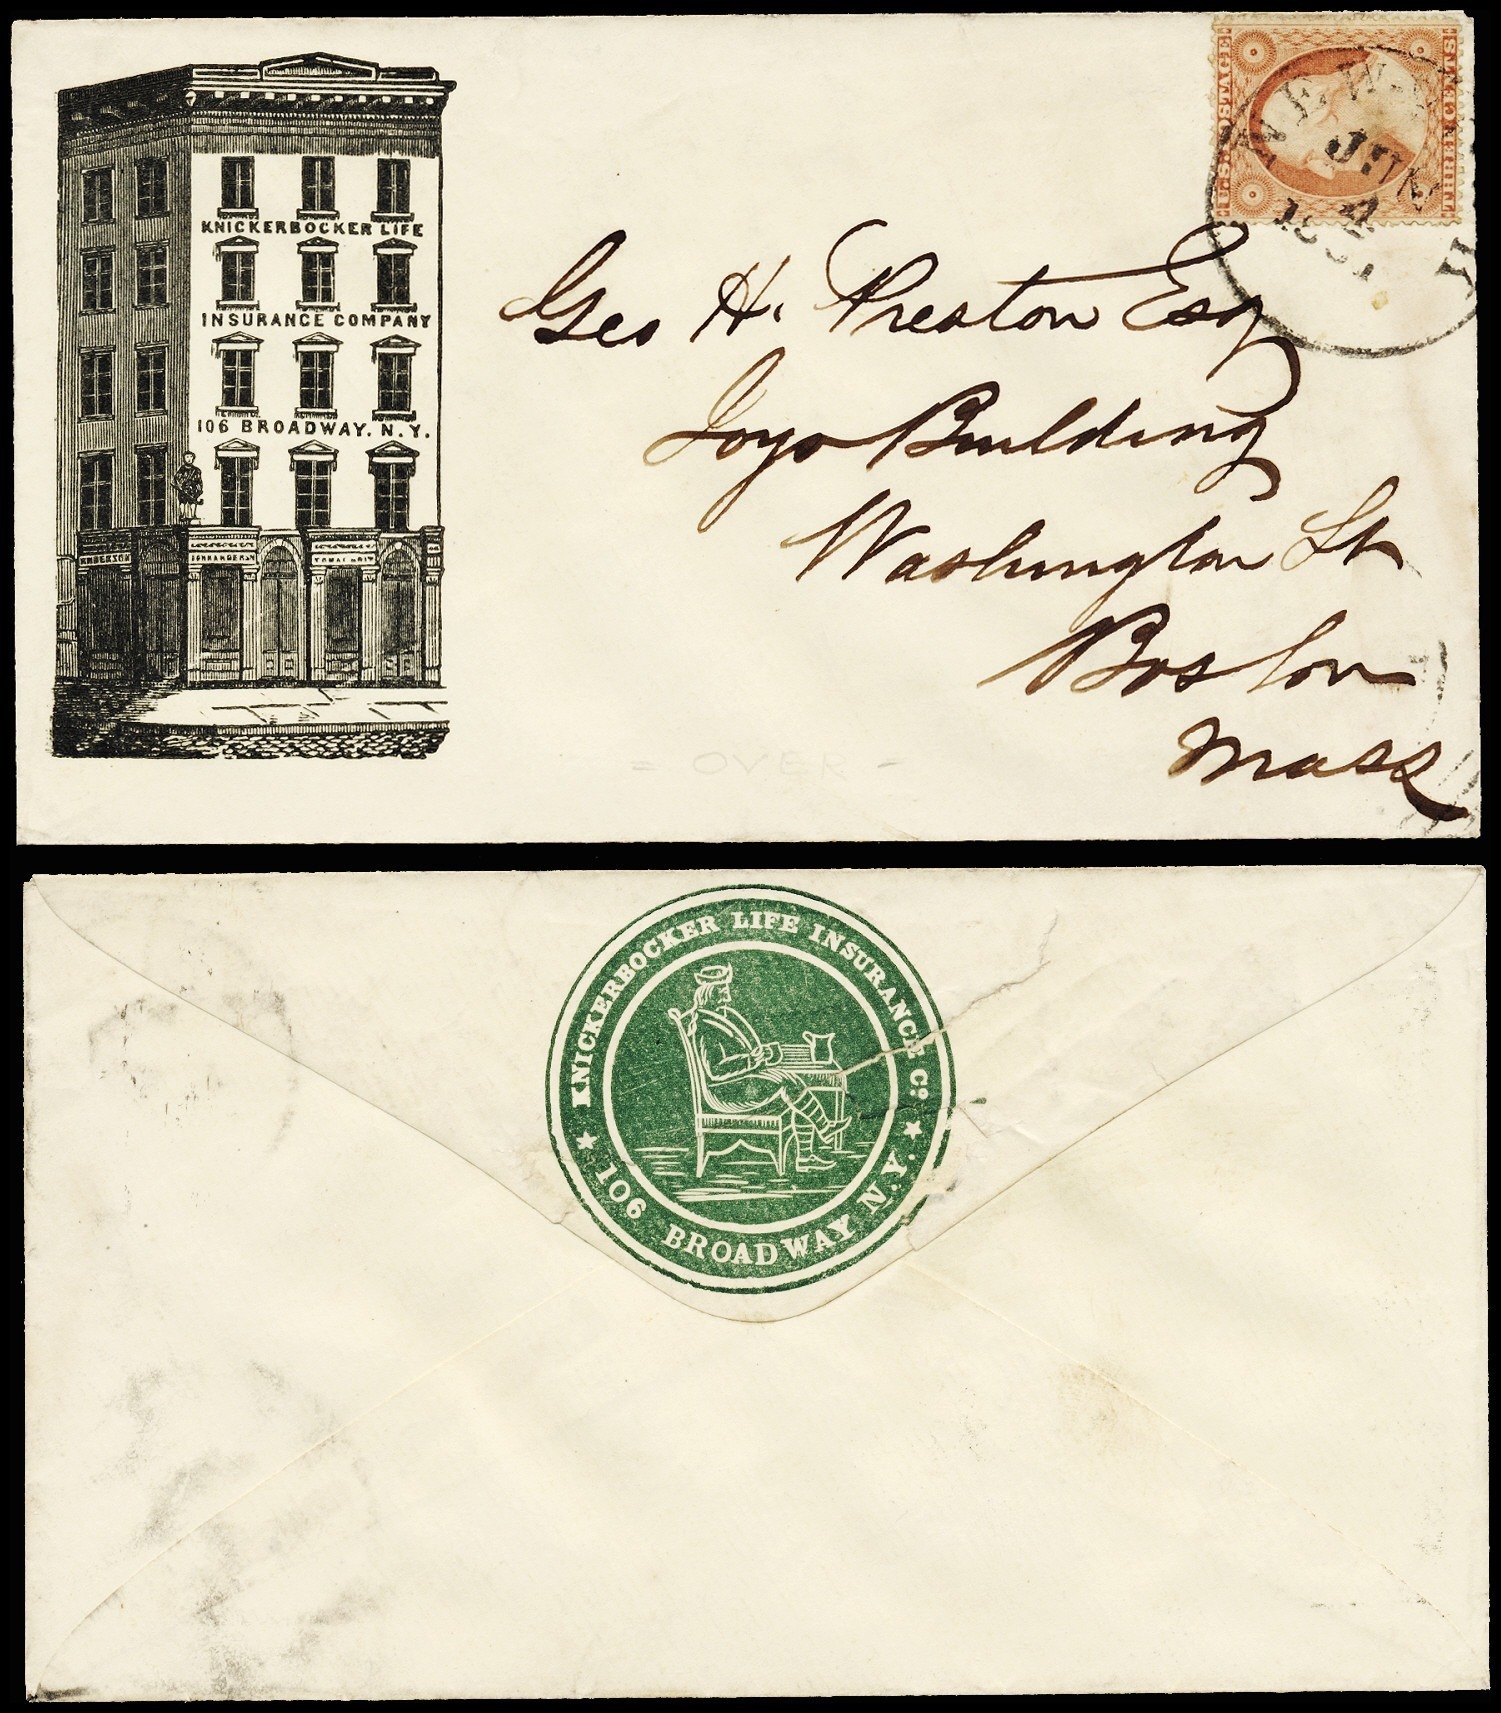 U.S. POSTAGE
THREE CENTS
NEW-Y
JUN
KNICKERBOCKER LIFE
INSURANCE COMPANY
106 BROADWAY. N. Y.
ANDERSON
Geo H. Preston Esq
Joys Building
Washington St
Boston
Mass
= OVER -
KNICKERBOCKER LIFE INSURANCE Co.
106 BROADWAY N.Y.